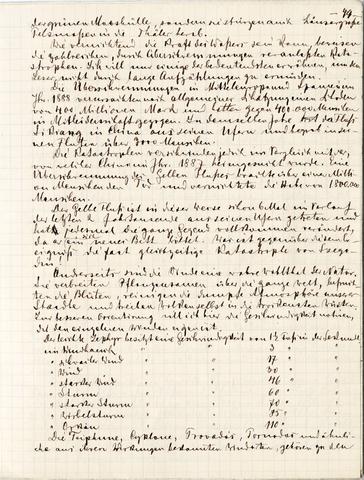 - 49 -
der grünen Maashülle, sondern es stürzen auch häusergroße
Felsmassen in die Thäler herab.
Wie vernichtend die Kraft des Wassers sein kann, beweisen
die zahlreichen, durch Überschwemmungen verursachten Kata-
strophen. Ich will nur einige der bedeutendsten erwähnen, um den
Leser nicht durch lange Aufzählungen zu ermüden.
Die Überschwemmungen in Mitteleuropa und Spanien im
Jhr. 1888 verursachten nach allgemeiner Schätzung einen Schaden
von 100 Millionen Mark und hatten gegen 400.000 Menschen
in Mitleidenschaft gezogen. In demselben Jahre trat der Fluß
in China aus seinen Ufern und begrub in sei-
nen Fluten über 3000 Menschen.
Die Katastrophen verschwinden jedoch im Vergleich mit der,
von welcher China im Jhr. 1887 heimgesucht wurde. Eine
Überschwemmung des Gelben Flußes brachte über eine Milli-
on Menschen den Tod und vernichtete die Habe von 1800.000
Menschen.
Der Gelbe Fluß ist in dieser Weise schon 6 Mal im Verlauf
der letzten 2 Jahrtausende aus seinen Ufern getreten und
hat jedesmal die ganze Gegend vollkommen verändert,
da er sich ein neues Bett bildet. Hier ist gegenüber diesem Er-
eigniß die fast gleichzeitige Katastrophe von Szege-
din.
Anderseits sind die Winde eine wahre Wohlthat der Natur.
Sie verbreiten Pflanzensamen über die ganze Welt, befruch-
ten die Blüten, reinigen die dumpfe Atmosphäre unserer
Städte und treiben Wolken selbst in die trockensten Wüsten.
Zur besseren Orientirung will ich hier die Geschwindigkeit notiren,
die den einzelnen Winden eigen ist.
Der leichte Zephyr besitzt eine Geschwindigkeit von 1½ Fuß in der Sekunde
ein Windhauch " " "
" schwacher Wind " 17 "
" Wind " 30 "
" starker Wind " 46 "
" Sturm " 60 "
" starker Sturm " 70 "
" Wirbelsturm " 95 "
" Orkan " 110 "
Die Taiphune, Cyklone, Trovados, Tornados und ähnli-
che aus ihren Wirkungen bekannten Windarten, gehören zu den